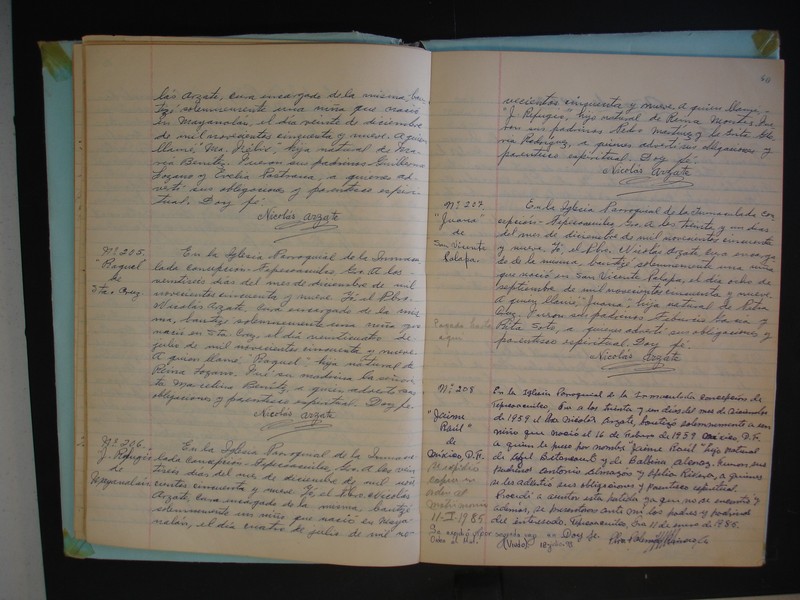 las Arzate, cura encargado de la misma, bau-
tizé solemnemente una niña que nació
en Mayanalán, el día veinte de diciembre
de mil novecientos cincuenta y nueve. A quien
llamé, "Ma. Félix" hija natural de Ma-
ría Benítez. Fueron sus padrinos Guillermo
Lozano y Evelia Pastrana, a quienes ad-
vertí sus obligaciones y parentesco espiri-
tual. Doy fé.
Nicolás Arzate
Nº 205.
"Raquel"
de
Sta. Cruz.
En la Iglesia Parroquial de la Inmacu-
lada Concepción - Tepecoacuilco, Gro. A los
veintiseis días del mes de diciembre de mil
novecientos cincuenta y nueve. Yó, el Pbro.
Nicolás Arzate, cura encargado de la mis-
ma, bautizé solemnemente una niña que
nació en Sta. Cruz, el día veinticuatro de
julio de mil novecientos cincuenta y nueve.
A quien llamé, "Raquel" hija natural de
Reina Lozano. Fué su madrina la señori-
ta Marcelina Benítez, a quien advertí sus
obligaciones y parentesco espiritual. Doy fé.
Nicolás Arzate
Nº 206.
J. Refugio
de
Mayanalán
En la Iglesia Parroquial de la Inmacu-
lada Concepción - Tepecoacuilco, Gro. A los vein-
tiseis días del mes de diciembre de mil nove-
cientos cincuenta y nueve. Yó, el Pbro. Nicolás
Arzate, cura encargado de la misma, bautizé
solemnemente un niño que nació en Maya-
nalán, el día cuatro de julio de mil no-
vecientos cincuenta y nueve. A quien llamé,
"J. Refugio", hijo natural de Reina Montes. Fue-
ron sus padrinos Pedro Martínez y la Srita.
Rodríguez, a quienes advertí sus obligaciones y
parentesco espiritual. Doy fé.
Nicolás Arzate
Nº 207.
"Juana"
de
San Vicente
Palapa.
En la Iglesia Parroquial de la Inmaculada Con-
cepción - Tepecoacuilco, Gro. A los treinta y un días
del mes de diciembre de mil novecientos cincuenta
y nueve. Yó, el Pbro. Nicolás Arzate cura encarga-
do de la misma, bautizé solemnemente una niña
que nació en San Vicente Palapa, el día ocho de
septiembre de mil novecientos cincuenta y nueve.
A quien llamé, "Juana" hija natural de Rita
Fueron sus padrinos García y
Rita Soto, a quienes advertí sus obligaciones y
parentesco espiritual. Doy fé.
Nicolás Arzate
Pasada hasta
aquí
Nº 208
"Jaime
Raúl"
de
México, D.F.
11-I-1985
En la Iglesia Parroquial de la Inmaculada Concepción de
Tepecoacuilco, Gro. a los treinta y un días del mes de Diciembre
de 1959 el Pbro. Nicolás Arzate, bautizó solemnemente a un
niño que nació el 16 de Febrero de 1959 México, D.F.
a quien le puso por nombre "Jaime Raúl" hijo natural
de Betancourt y de Balbina Fueron sus
padrinos Antonio Almazán y Ofelia a quienes
se les advirtió sus obligaciones y parentesco espiritual.
Procedí a asentar esta partida, ya que no se encontró y
además, se presentaron ante mí los padres y padrinos
del interesado. Tepecoacuilco, Gro. 11 de enero de 1985.
Doy fe.
(Viudo)